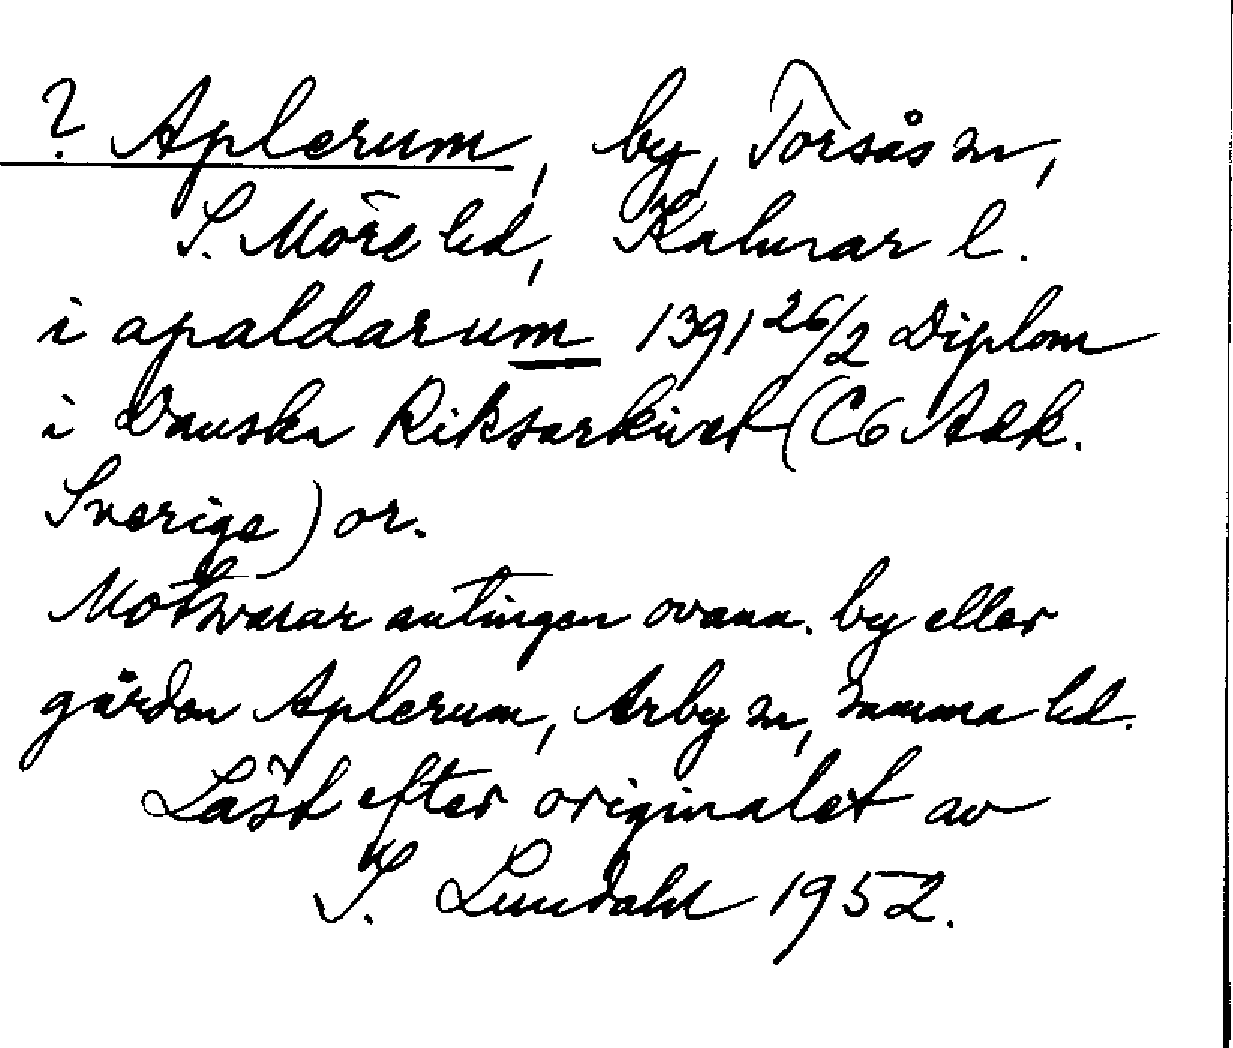 ? Aplerum, by, Torsås sn,
S. Möre hd, Kalmar l.
i apaldarum 1391 26/2 Diplom
i Danska Riksarkivet (C6 Adk.
Sverige) or.
Motsvarar antingen ovann. by eller
gården Aplerum, Arby sn, samma hd.
Läst efter originalet av
I. Lundahl 1952.